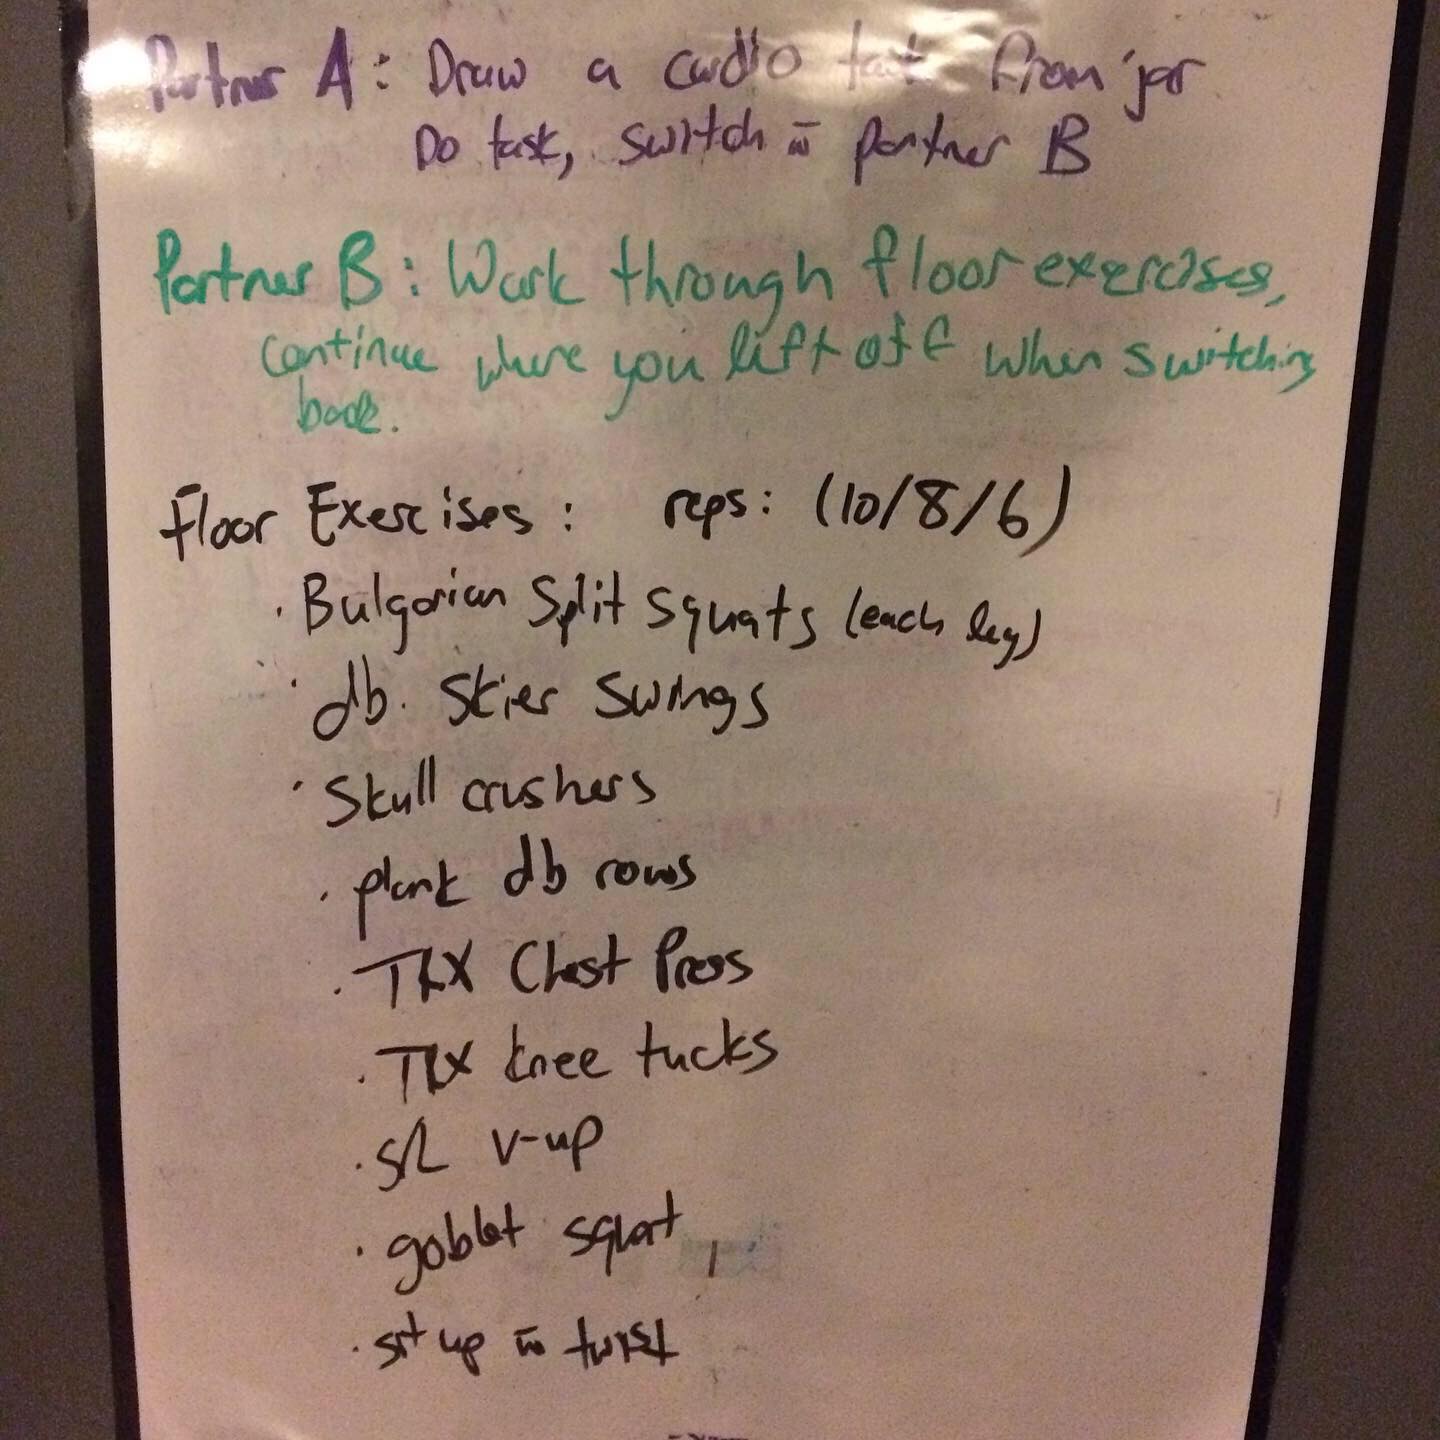 Partner A: Draw a cardio task from jar
Do task, switch w̄ partner B
Partner B: Work through floor exercises,
continue where you lift off when switching
back.
Floor Exercises: reps: (10/8/6)
· Bulgarian Split Squats (each leg)
· db. Skier Swings
· Skull crushers
· plank db rows
· TRX Chest Press
· TRX knee tucks
· S/L V-up
· goblet squat
· sit up w̄ twist